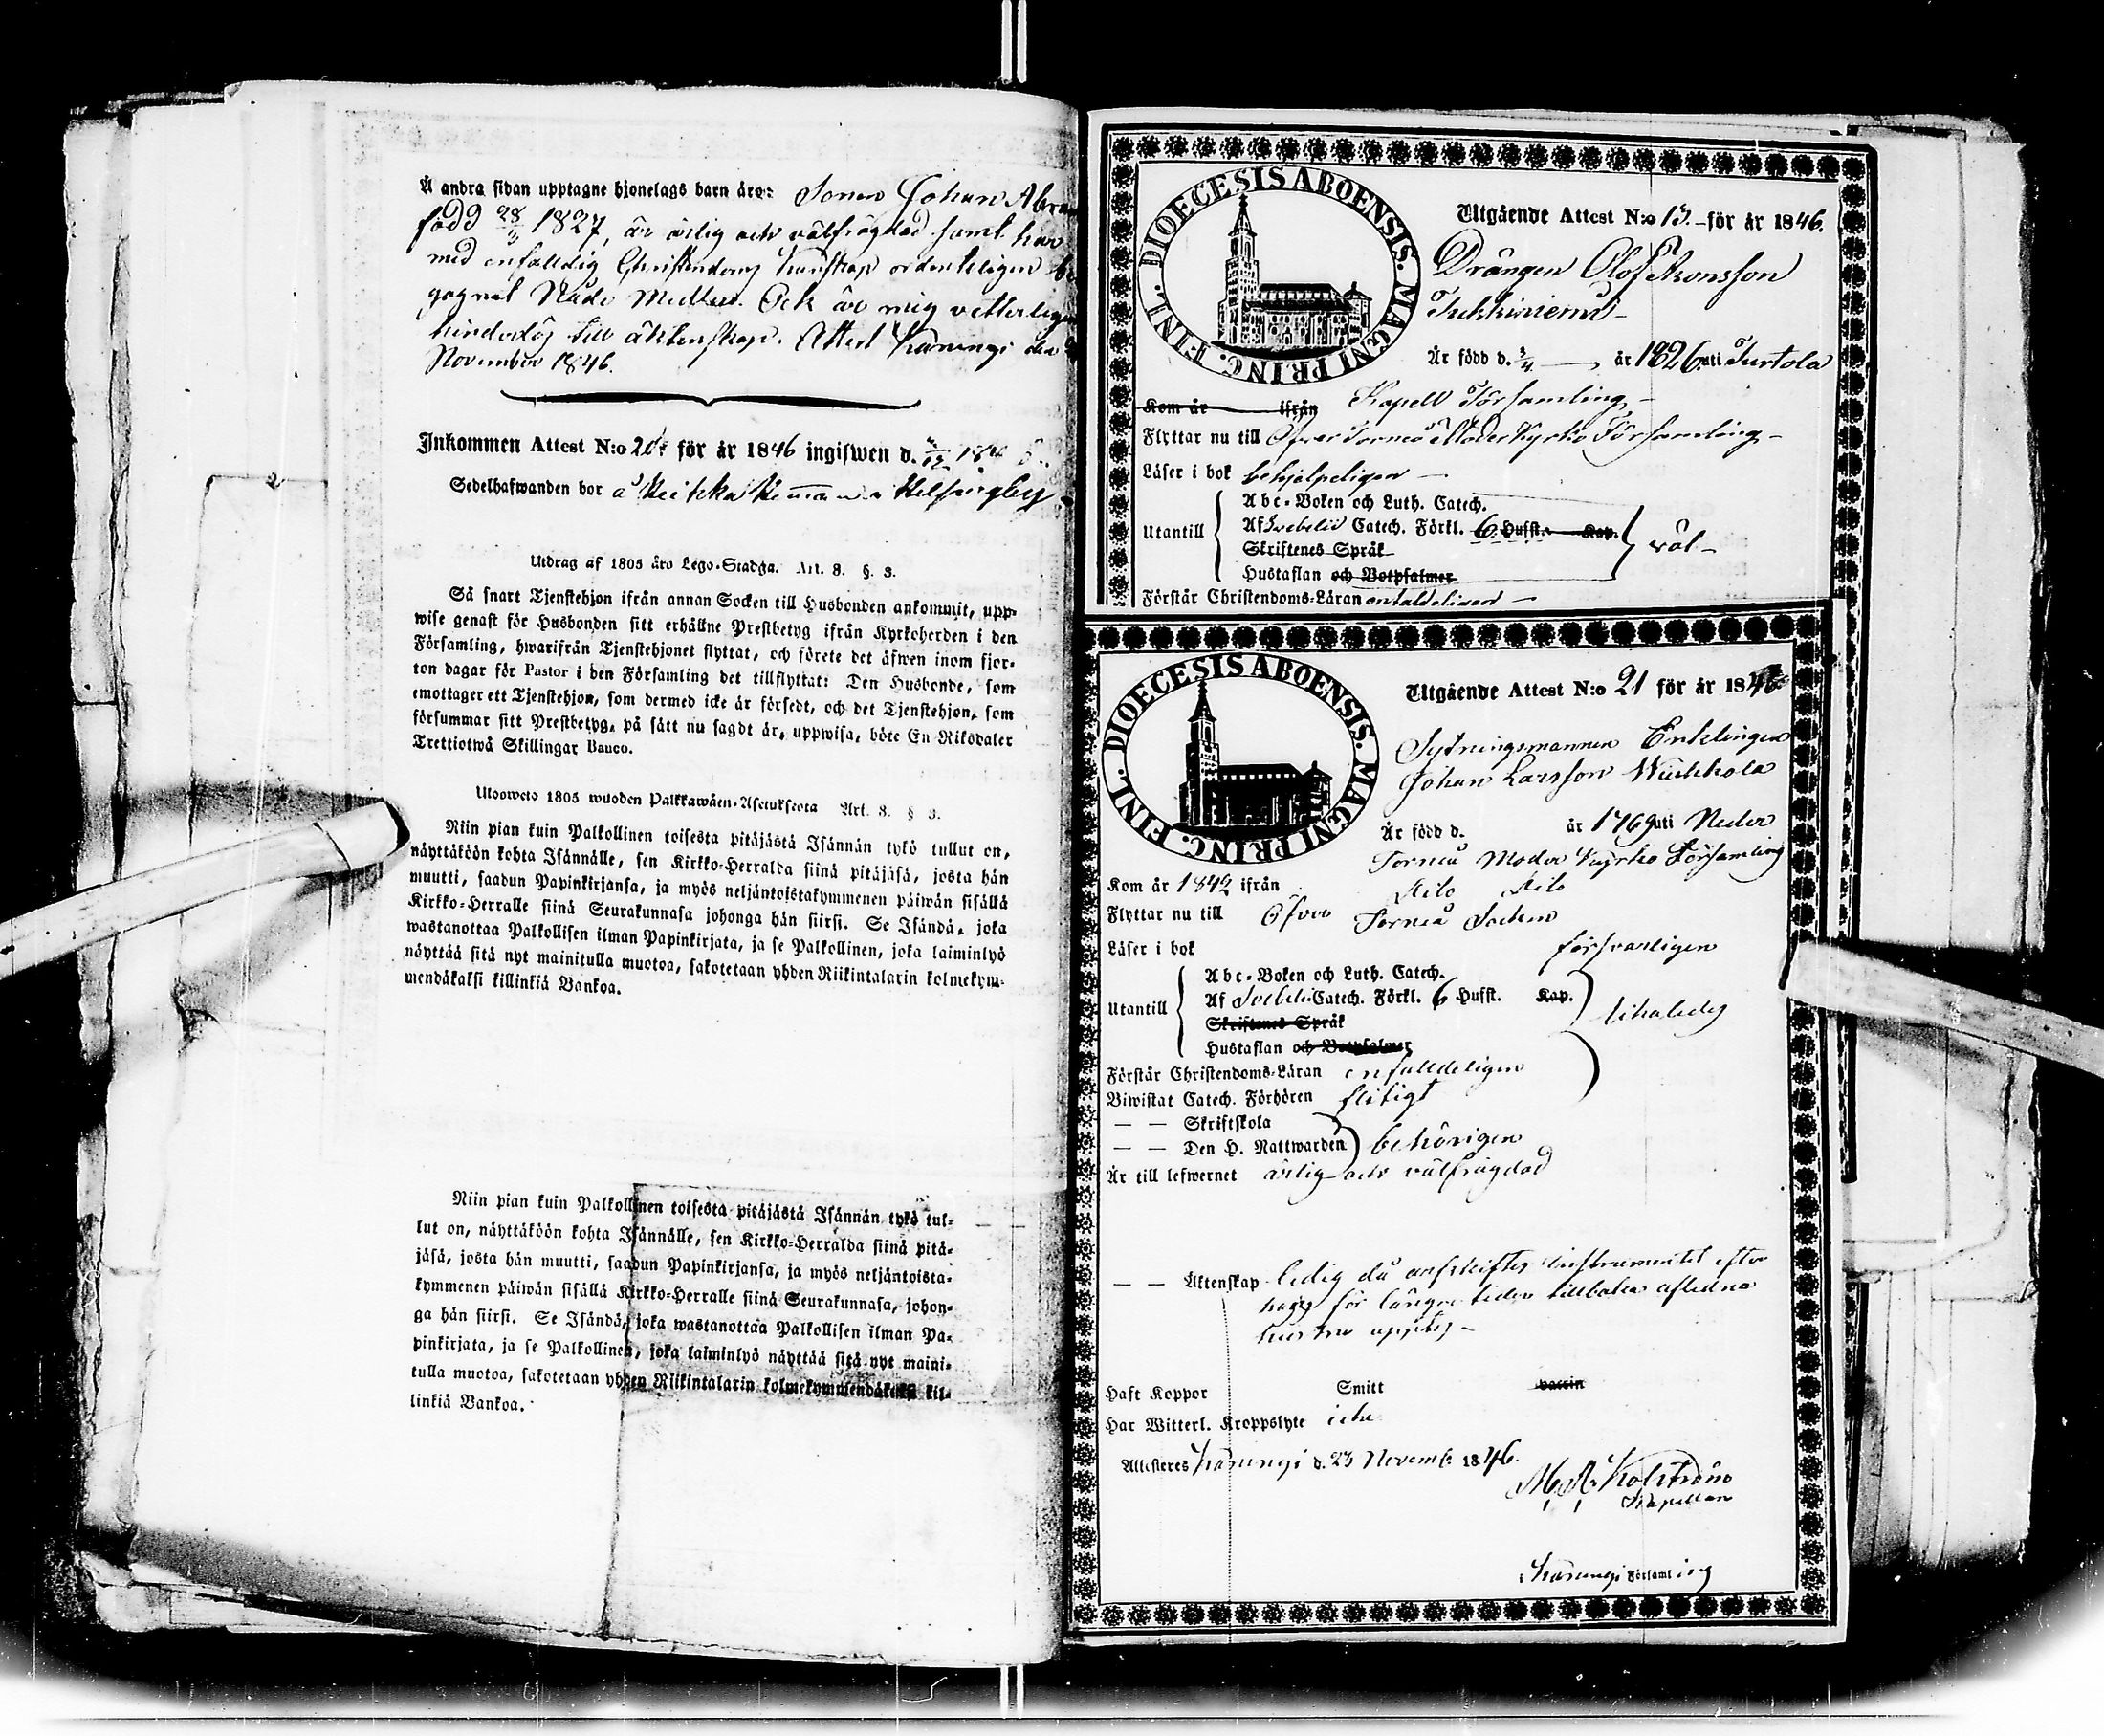 Å andra sidan upptagne hjonelags barn äro: Sonen Johan Abra
född 28/3 1827, är ärlig och välfrägdad samt har
med enfaldig Christendoms kunskap ordenteligen
gagnat Nåde Medlen. Ock är mig vetterlige
hinderlös till äktenskap. Attest. Karungi den
November 1846.
Inkommen Attest N:o 20 för år 1846 ingifwen d. /12 184
Sedelhafwanden bor å Heikka Hemman i Helsingby
Utdrag af 1805 års Lego-Stadga. Art. 8. §. 3.
Så snart Tjenstehjon ifrån annan Socken till Husbonden ankommit, upp-
wise genast för Husbonden sitt erhållne Prestbetyg ifrån Kyrkoherden i den
Församling, hwarifrån Tjenstehjonet flyttat, och förete det äfwen inom fjor-
ton dagar för Pastor i den Församling det tillflyttat: Den Husbonde, som
emottager ett Tjenstehjon, som dermed icke är försedt, och det Tjenstehjon, som
försummar sitt Prestbetyg, på sätt nu sagdt är, uppwisa, böte En Riksdaler
Trettiotwå Skillingar Banco.
Ulosweto 1805 wuoden Palkkawäen-Asetuksesta Art. 8. § 3.
Niin pian kuin Palkollinen toisesta pitäjästä Isännän tykö tullut on,
näyttäköön kohta Isännälle, sen Kirkko-Herralda siinä pitäjäsä, josta hän
muutti, saadun Papinkirjansa, ja myös neljäntoistakymmenen päiwän sisällä
Kirkko-Herralle siinä Seurakunnasa johonga hän siirsi. Se Isändä, joka
wastanottaa Palkollisen ilman Papinkirjata, ja se Palkollinen, joka laiminlyö
näyttää sitä nyt mainitulla muotoa, sakotetaan yhden Riikintalarin kolmekym-
mendäkaksi killinkiä Bankoa.
Niin pian kuin Palkollinen toisesta pitäjästä Isännän tykö tul-
lut on, näyttäköön kohta Isännälle, sen Kirkko-Herralda siinä pitä-
jäsä, josta hän muutti, saadun Papinkirjansa, ja myös neljäntoista-
kymmenen päiwän sisällä Kirkko-Herralle siinä Seurakunnasa, johon-
ga hän siirsi. Se Isändä, joka wastanottaa Palkollisen ilman Pa-
pinkirjata, ja se Palkollinen, joka laiminlyö näyttää sitä nyt maini-
tulla muotoa, sakotetaan yhden Riikintalarin kolmekymmendäkaksi kil-
linkiä Bankoa.
DIOECESIS ABOENSIS. MAGNI PRINC. FINL.
Utgående Attest N:o 13. för år 1846.
Drängen Olof Aronsson
Är född d. 3/4. år 1826 uti Turtola
Kom år ifrån Kapell Församling
Flyttar nu till Öfver Torneå Moder Kyrko Församling
Läser i bok behjelpeligen
Utantill
Abc-Boken och Luth. Catech.
Af Svebelii Catech. Förkl. 6. Husst. Kap.
Skriftenes Språk
Hustaflan och Botpsalmer
väl
Förstår Christendoms-Läran enfaldeligen
DIOECESIS ABOENSIS. MAGNI PRINC. FINL.
Utgående Attest N:o 21 för år 1846
Sytningsmannen Enklingen
Johan Larsson
Är född d. år 1769 uti Neder
Torneå Moder Kyrko Församling
Kom år 1842 ifrån
Flyttar nu till Öfver Torneå Socken
Läser i bok försvarligen
Utantill
Abc-Boken och Luth. Catech.
Af Svebelii Catech. Förkl. 6 Husst. Kap.
Skriftenes Språk
Hustaflan och Botpsalmer
likaledes
Förstår Christendoms-Läran enfalldeligen
Biwistat Catech. Förhören flitigt
— — Skriftskola
— — Den H. Nattwarden behörigen
Är till lefwernet ärlig och välfrägdad
— — Äktenskap ledig då arfskiftes instrumentet efter
hans för längre tider tillbaka aflidna
hustru uppvises
Haft Koppor Smitt vaccin
Har Witterl. Kroppslyte icke
Attesteres Karungi d. 23 Novemb. 1846.
Kapellan
Karungi Församling